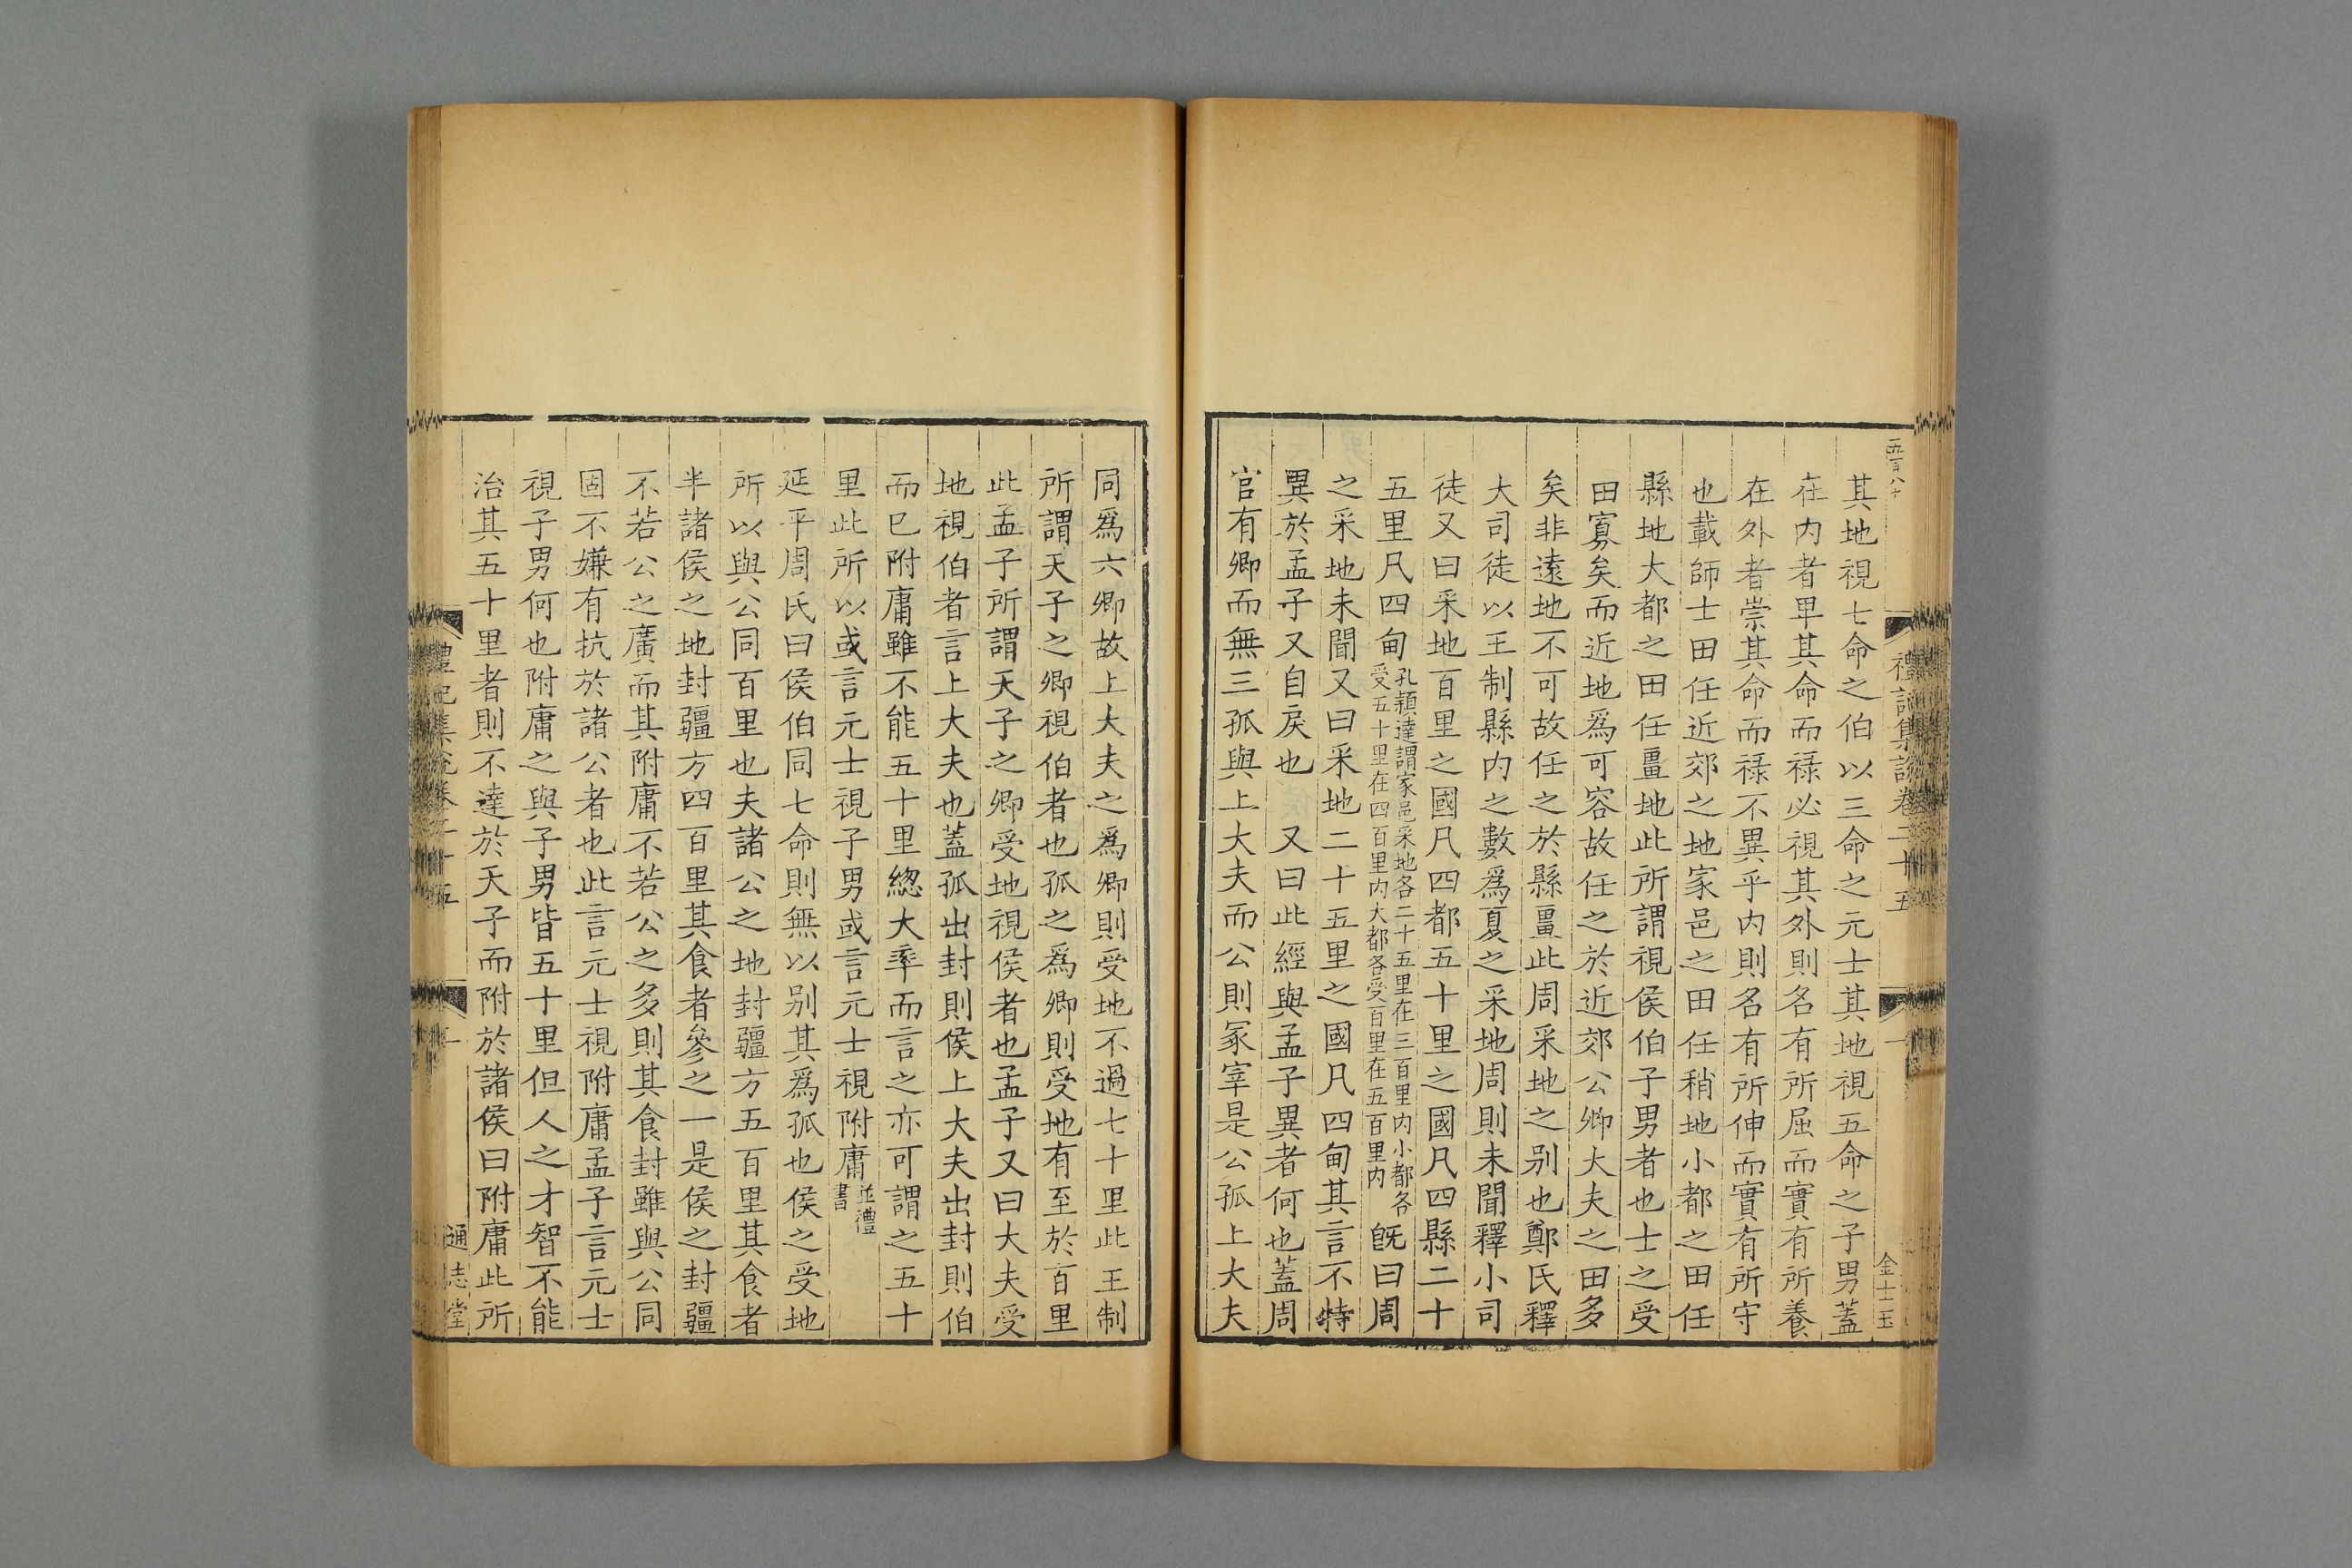 五百八十
禮記集說卷二十五
一
金士玉
其地視七命之伯以三命之元士其地視五命之子男蓋
在内者卑其命而祿必視其外則名有所屈而實有所養
在外者崇其命而祿不異乎内則名有所伸而實有所守
也載師士田任近郊之地家邑之田任稍地小都之田任
縣地大都之田任畺地此所謂視侯伯子男者也士之受
田寡矣而近地爲可容故任之於近郊公卿大夫之田多
矣非遠地不可故任之於縣畺此周采地之别也鄭氏釋
大司徒以王制縣内之數爲夏之采地周則未聞釋小司
徒又曰采地百里之國凡四都五十里之國凡四縣二十
五里凡四甸孔穎達謂家邑采地各二十五里在三百里内小都各受五十里在四百里内大都各受百里在五百里内旣曰周
之采地未聞又曰采地二十五里之國凡四甸其言不特
異於孟子又自戾也　又曰此經與孟子異者何也蓋周
官有卿而無三孤與上大夫而公則冢宰是公孤上大夫
同爲六卿故上大夫之爲卿則受地不過七十里此王制
所謂天子之卿視伯者也孤之爲卿則受地有至於百里
此孟子所謂天子之卿受地視侯者也孟子又曰大夫受
地視伯者言上大夫也蓋孤出封則侯上大夫出封則伯
而已附庸雖不能五十里緫大率而言之亦可謂之五十
里此所以或言元士視子男或言元士視附庸並禮書
延平周氏曰侯伯同七命則無以别其爲孤也侯之受地
所以與公同百里也夫諸公之地封疆方五百里其食者
半諸侯之地封疆方四百里其食者參之一是侯之封疆
不若公之廣而其附庸不若公之多則其食封雖與公同
固不嫌有抗於諸公者也此言元士視附庸孟子言元士
視子男何也附庸之與子男皆五十里但人之才智不能
治其五十里者則不達於天子而附於諸侯曰附庸此所
禮記集說卷二十五
通志堂